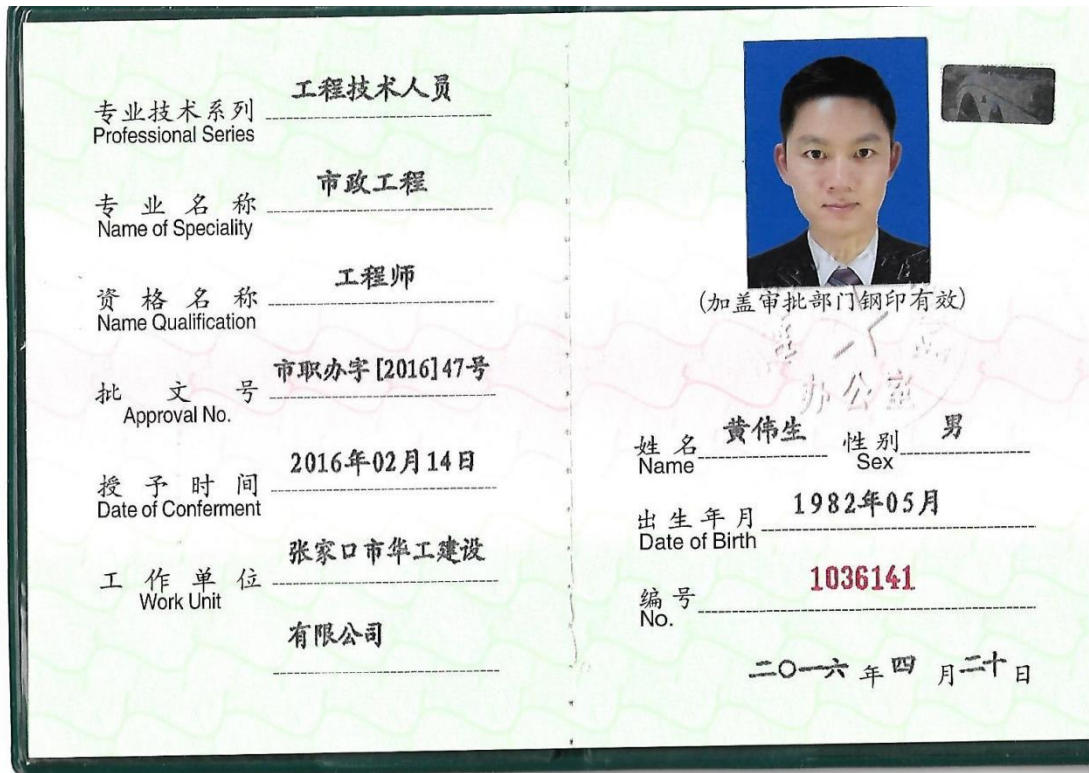 工程技术人员
专业技术系列
Professional Series
市政工程
专业名称
Name of Speciality
工程师
资格名称
Name Qualification
市职办字[2016]47号
批文号
Approval No.
2016年02月14日
授予时间
Date of Conferment
张家口市华工建设
工作单位
Work Unit
有限公司
(加盖审批部门钢印有效)
办公室
姓名 黄伟生 性别 男
Name Sex
出生年月 1982年05月
Date of Birth
编号 1036141
No.
二〇一六年四月二十日